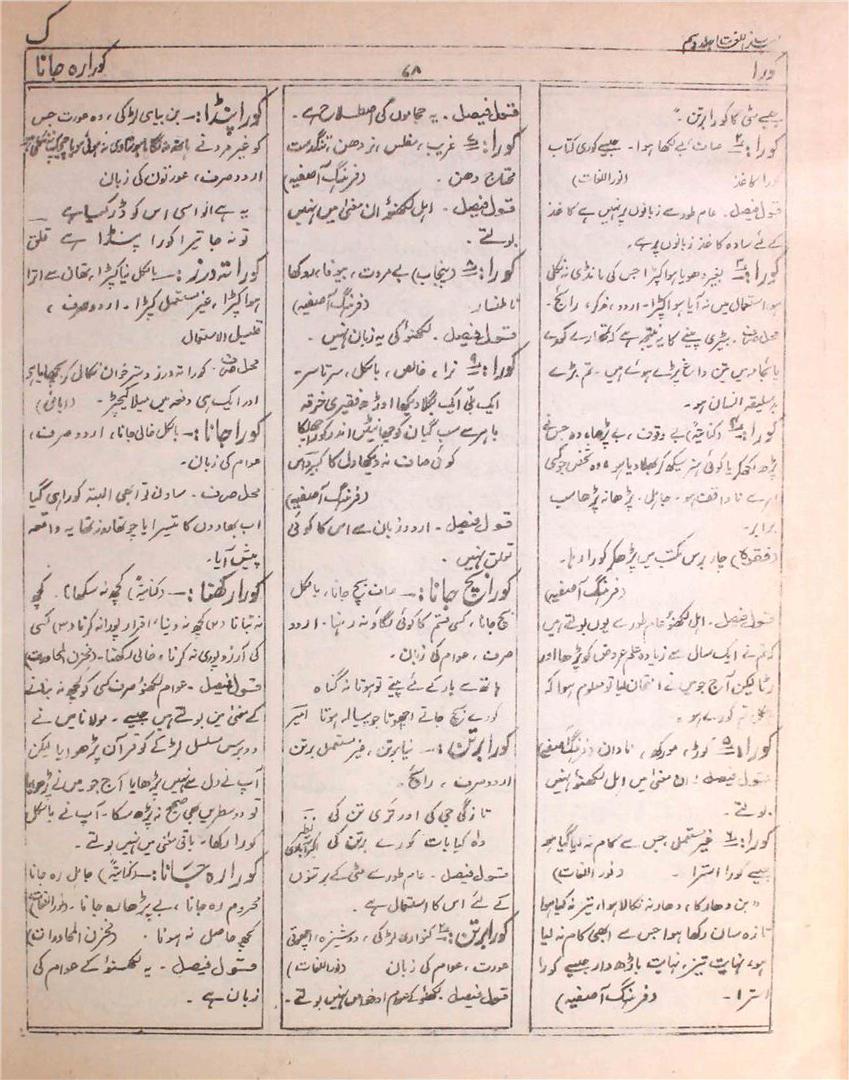 ک
مہذب اللغات جلد دہم
کورا
۶۸
کورا رہ جانا
جیسے مٹی کا کورا برتن ۔
کورا:۔ صاف بے لکھا ہوا۔ جیسے کوری کتاب
کورا کاغذ (نور اللغات)
قول فیصل۔ عام طور سے زبانوں پر نہیں ہے کاغذ
کے لئے سادہ کاغذ زبانوں پر ہے۔
کورا:۔ بغیر دھویا ہوا کپڑا جس کی مانڈی نہ نکلی
ہو، استعمال میں نہ آیا ہوا کپڑا۔ اردو، مذکر، رائج۔
محل صرف۔ بیڑی پینے کا یہ نتیجہ ہے کہ تمھارے کورے
پائجامہ میں تین داغ پڑے ہوئے ہیں۔ تم بڑے
بد سلیقہ انسان ہو۔
کورا:۔ (کنایۃً) بے وقوف، بے پڑھا، وہ جس نے
پڑھ لکھ کر یا کوئی ہنر سیکھ کر بھلا دیا ہو، وہ شخص جو کسی
امر سے ناواقف ہو۔ جاہل۔ پڑھا نہ پڑھا سب
برابر۔
(فقرہ) چار برس مکتب میں پڑھ کر کورا رہا۔
(فرہنگ آصفیہ)
قول فیصل۔ اہل لکھنؤ عام طور سے یوں بولتے ہیں
کہ تم نے ایک سال سے زیادہ علم عروض کو پڑھا اور
رٹا لیکن آج جو میں نے امتحان لیا تو معلوم ہوا کہ
بالکل تم کورے ہو۔
کورا:۔ کوڑ، مورکھ، نادان (فرہنگ آصفیہ)
قول فیصل۔ ان معنی میں اہل لکھنؤ نہیں
بولتے۔
کورا:۔ غیر مستعمل جس سے کام نہ لیا گیا ہو
جیسے کورا استرا۔ (نور اللغات)
بن دھار کا، دھار نہ نکالا ہوا، تیز نہ کیا ہوا
تازہ سان رکھا ہوا جس سے ابھی کام نہ لیا
ہو، نہایت تیز، نہایت باڑھ دار جیسے کورا
استرا۔ (فرہنگ آصفیہ)
قول فیصل۔ یہ حجاموں کی اصطلاح ہے۔
کورا:۔ غریب، مفلس، نردھن، تنگدست
محتاج دھن۔ (فرہنگ آصفیہ)
قول فیصل۔ اہل لکھنؤ ان معنی میں نہیں
بولتے۔
کورا:۔ (پنجاب) بے مروت، بیوفا، روکھا
ناملنسار (فرہنگ آصفیہ)
قول فیصل۔ لکھنؤ کی یہ زبان نہیں۔
کورا:۔ نرا، خالص، بالکل، سرتا سر۔
ایک نبی ایک بگلا دیکھا اوڑھے فقیری خرقہ
باہر سے سب گیان کو چھانٹیں اندر کورا
کوئی صاف نہ دیکھا دل کا کبیر داس
(فرہنگ آصفیہ)
قول فیصل۔ اردو زبان سے اس کا کوئی
تعلق نہیں۔
کورا بچ جانا:۔ صاف بچ جانا، بالکل
بچ جانا، کسی قسم کا کوئی لگاؤ نہ رہنا۔ اردو
صرف، عوام کی زبان۔
ہاتھ سے یار کے لئے پیتے تو ہوتا نہ گناہ
کورے بچ جاتے اچھوتا جو پیالہ ہوتا امیر
کورا برتن:۔ نیا برتن، غیر مستعمل برتن
اردو صرف، رائج۔
تازگی جی کی اور تری تن کی
واہ کیا بات کورے برتن کی نظیر اکبر آبادی
قول فیصل۔ عام طور سے مٹی کے برتنوں
کے لئے اس کا استعمال ہے۔
کورا برتن:۔ کنواری لڑکی، دوشیزہ، اچھوتی
عورت، عوام کی زبان (نور اللغات)
قول فیصل۔ لکھنؤ کے عوام اور خواص نہیں بولتے۔
کورا پنڈا:۔ بن بیاہی لڑکی، وہ عورت جس
کو غیر مرد نے ہاتھ نہ لگایا ہو شادی نہ ہوئی ہو
اردو صرف، عورتوں کی زبان
یہ ہے انواسی اس کو ڈر کیا ہے
تو نہ جا تیرا کورا پنڈا ہے قلق
کورا تہ درز:۔ بالکل نیا کپڑا، تھان سے اترا
ہوا کپڑا، غیر مستعمل کپڑا۔ اردو صرف،
قلیل الاستعمال
محل صرف۔ کورا تہ درز دسترخوان نکالی کر بچھایا
اور ایک ہی دفعہ میں میلا کیچڑ۔
کورا جانا:۔ بالکل خالی جانا، اردو صرف،
عوام کی زبان۔
محل صرف۔ ساون تو ابھی البتہ کورا ہی گیا
اب بھادوں کا تیسرا یا چوتھا روز تھا یہ واقعہ
پیش آیا۔
کورا رکھنا:۔ (کنایۃً) کچھ نہ سکھانا۔ کچھ
نہ بتانا (۲) کچھ نہ دینا، اقرار پورا نہ کرنا (۳) کسی
کی آرزو پوری نہ کرنا، خالی رکھنا۔ (مخزن المحاورات)
قول فیصل۔ عوام لکھنؤ صرف کسی کو کچھ نہ بتانے
کے معنی میں بولتے ہیں جیسے۔ مولانا میں نے
دو برس مسلسل لڑکے کو قرآن پڑھوایا لیکن
آپ نے دل سے نہیں پڑھایا آج جو میں نے پڑھوایا
تو دو سطریں بھی صحیح نہ پڑھ سکا۔ آپ نے بالکل
کورا رکھا۔ باقی معنی میں نہیں بولتے۔
کورا رہ جانا:۔ (کنایۃً) جاہل رہ جانا
محروم رہ جانا، بے پڑھا رہ جانا۔ (نور اللغات)
کچھ حاصل نہ ہونا۔ (مخزن المحاورات)
قول فیصل۔ یہ لکھنؤ کے عوام کی
زبان ہے۔